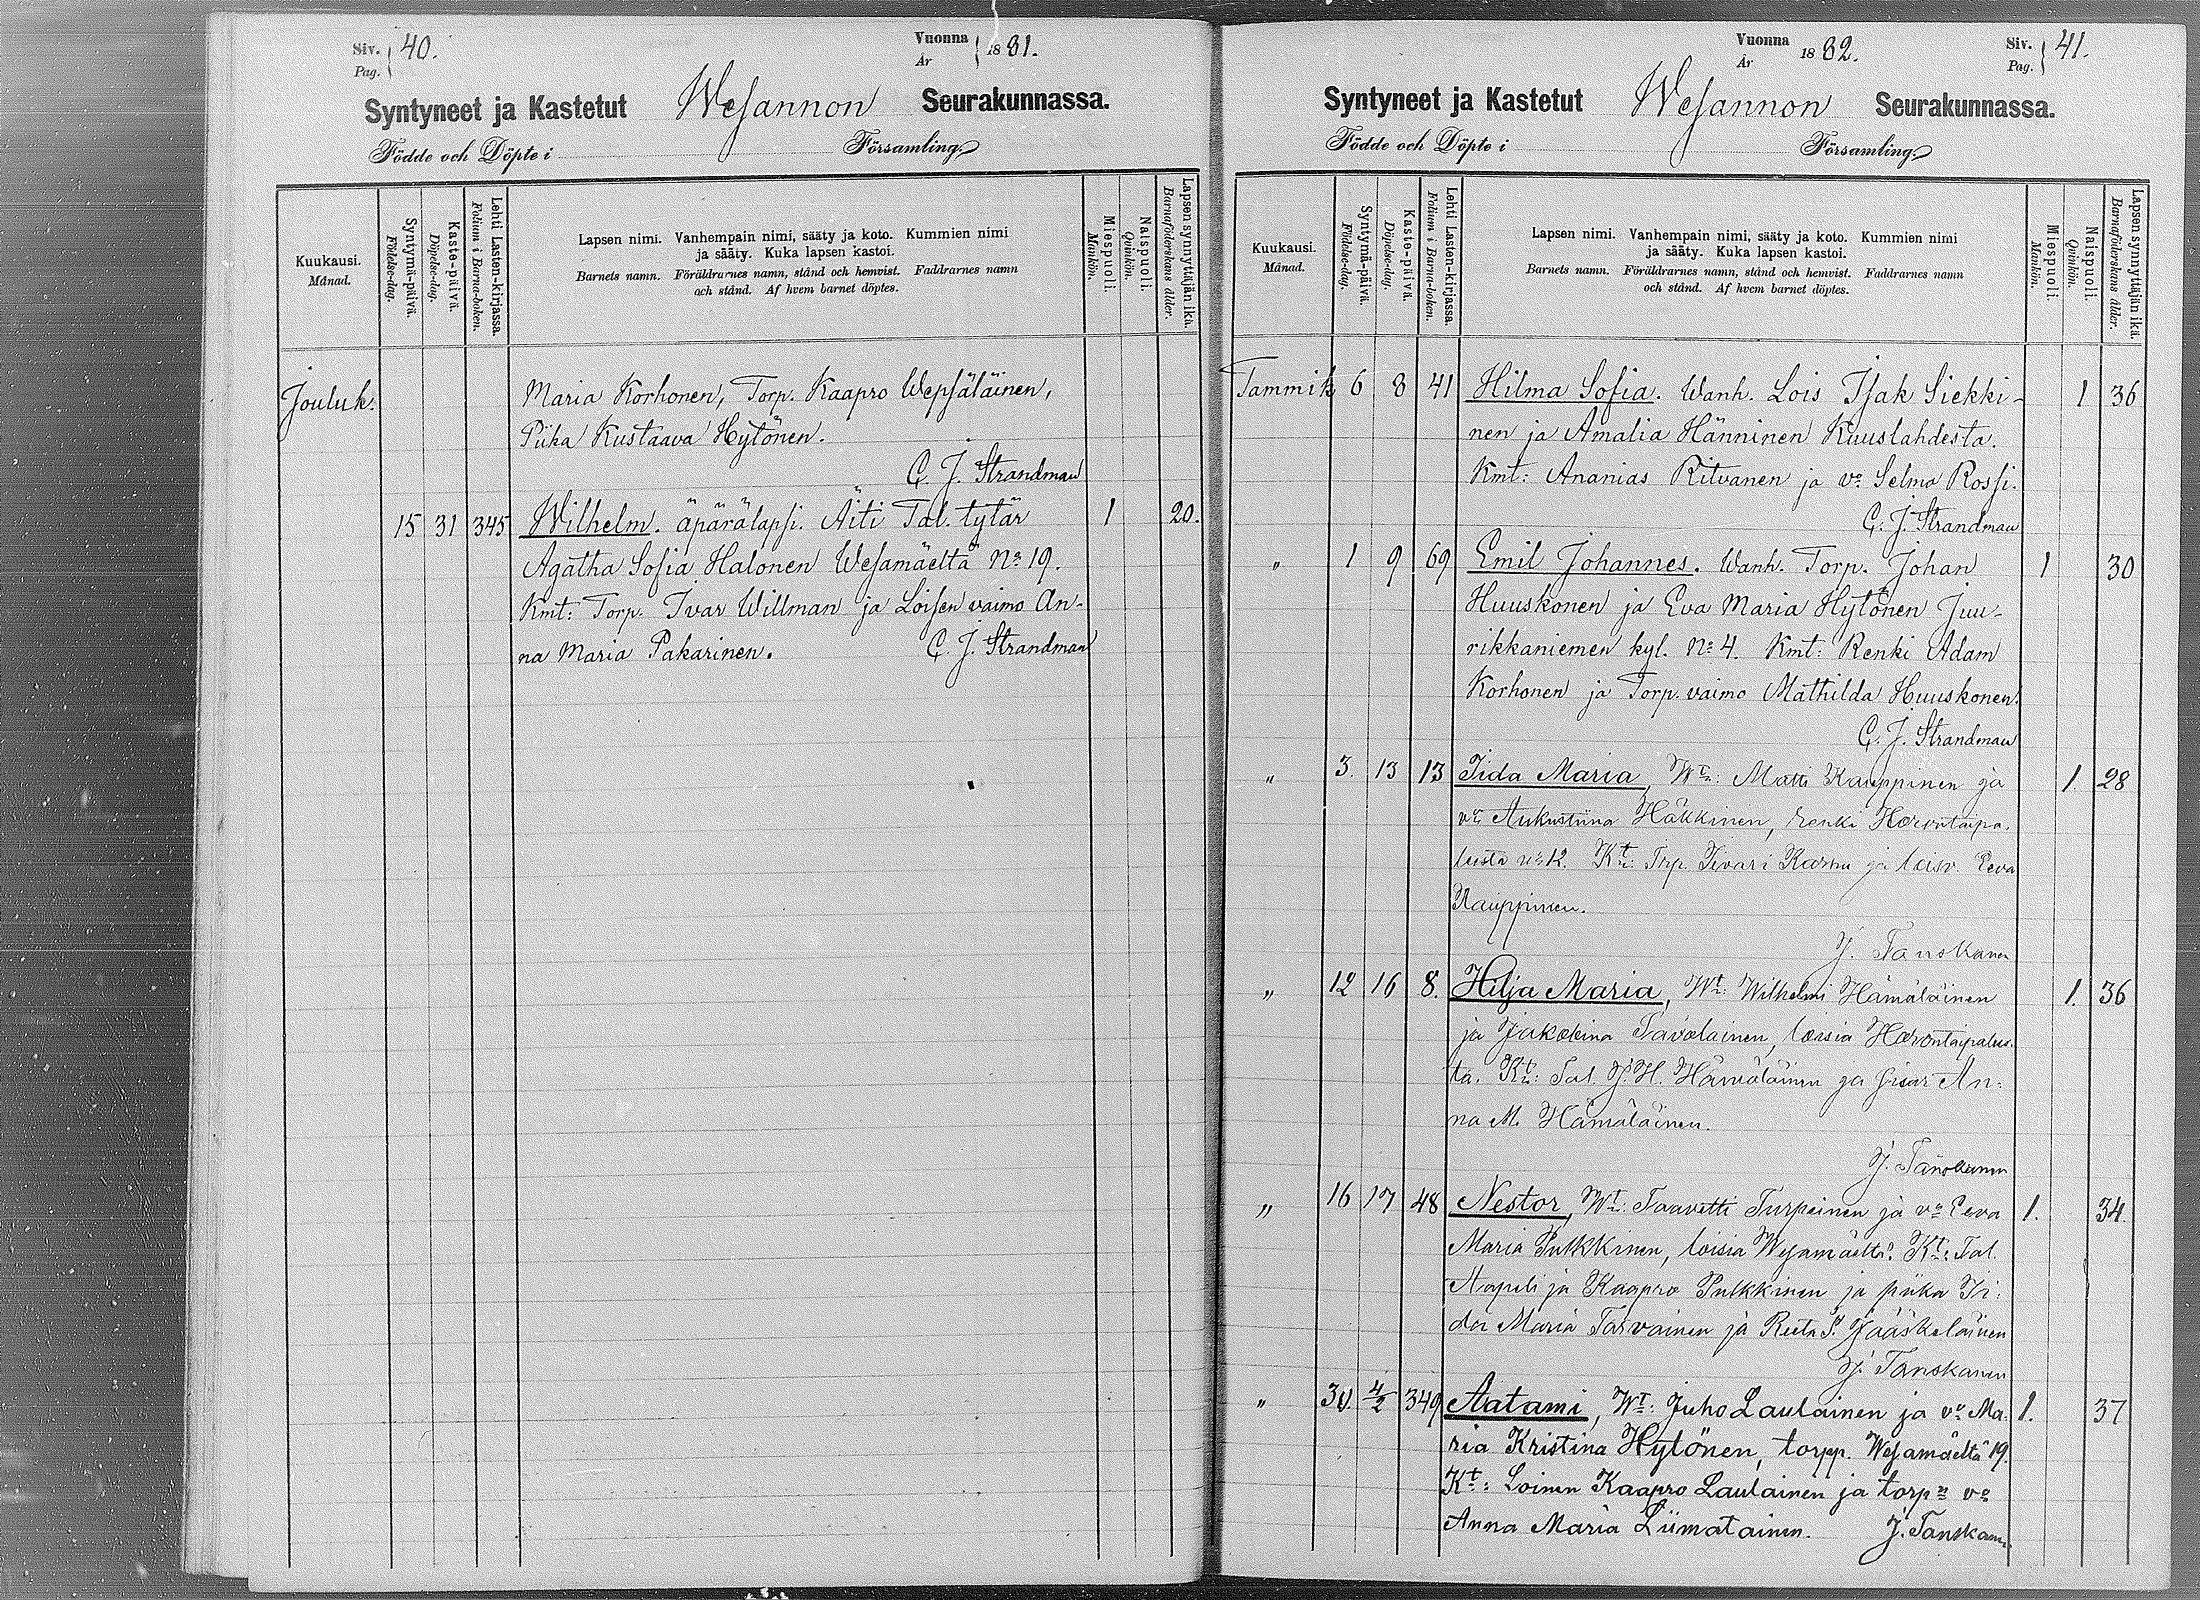 Siv. Pag. 40.
Vuonna År 1881.
Syntyneet ja Kastetut Wesannon Seurakunnassa.
Födde och Döpte i Församling.
Kuukausi. Månad.
Syntymä-päivä. Födelse-dag.
Kaste-päivä. Döpelse-dag.
Lehti Lasten-kirjassa. Folium i Barna-boken.
Lapsen nimi. Vanhempain nimi, sääty ja koto. Kummien nimi
ja sääty. Kuka lapsen kastoi.
Barnets namn. Föräldrarnes namn, stånd och hemvist. Faddrarnes namn
och stånd. Af hvem barnet döptes.
Miespuoli. Mankön.
Naispuoli. Qvinkön.
Lapsen synnyttäjän ikä. Barnaföderskans ålder.
Jouluk. Maria Korhonen, Torp. Kaapro Wepsäläinen,
Piika Kustaava Hytönen.
C. J. Strandman
15 31 345 Wilhelm. äpärälapsi. Äiti Tal. tytär 1 20.
Agatha Sofia Halonen Wesamäeltä No 19.
Kmt: Torp. Ivar Willman ja Loisen vaimo An-
na Maria Pakarinen. C. J. Strandman
Vuonna År 1882.
Siv. Pag. 41.
Syntyneet ja Kastetut Wesannon Seurakunnassa.
Födde och Döpte i Församling.
Kuukausi. Månad.
Syntymä-päivä. Födelse-dag.
Kaste-päivä. Döpelse-dag.
Lehti Lasten-kirjassa. Folium i Barna-boken.
Lapsen nimi. Vanhempain nimi, sääty ja koto. Kummien nimi
ja sääty. Kuka lapsen kastoi.
Barnets namn. Föräldrarnes namn, stånd och hemvist. Faddrarnes namn
och stånd. Af hvem barnet döptes.
Miespuoli. Mankön.
Naispuoli. Qvinkön.
Lapsen synnyttäjän ikä. Barnaföderskans ålder.
Tammik 6 8 41 Hilma Sofia. Wanh. Lois Isak Siekki- 1 36
nen ja Amalia Hänninen Kuuslahdesta.
Kmt: Ananias Ritvanen ja vo Selma Rossi.
C. J. Strandman
" 1 9 69 Emil Johannes. Wanh. Torp. Johan 1 30
Huuskonen ja Eva Maria Hytönen Juu-
rikkaniemen kyl. No 4. Kmt: Renki Adam
Korhonen ja Torp. vaimo Mathilda Huuskonen.
C. J. Strandman
" 3. 13 13 Iida Maria, Wt: Matti Kauppinen ja 1. 28
vo Aukustiina Häkkinen, renki Horontaipa-
leesta no 12. Kt: Trp. Iivari Karhu ja loisv. Eeva
Kauppinen.
J. Tanskanen
" 12 16 8. Hilja Maria, Wt: Wilhelmi Hämäläinen 1. 36
ja Jakobina Tavolainen, loisia Horontaipalees-
ta. Kt: Tal. J. H. Hämäläinen ja sisar An-
na M. Hämäläinen.
J. Tanskanen
" 16 17 48 Nestor, Wt: Taavetti Turpeinen ja vo Eeva 1. 34.
Maria Pulkkinen, loisia Wesamäeltä. Kt: Tal.
Aapeli ja Kaapro Pulkkinen ja piika Ii-
da Maria Tarvainen ja Reeta S. Jääskeläinen
J. Tanskanen
" 30. 4/2 349 Aatami, Wt: Juho Laulainen ja vo Ma- 1. 37
ria Kristina Hytönen, torpp. Wesamäeltä 19.
Kt: Loinen Kaapro Laulainen ja torpn vo
Anna Maria Liimatainen. J. Tanskanen